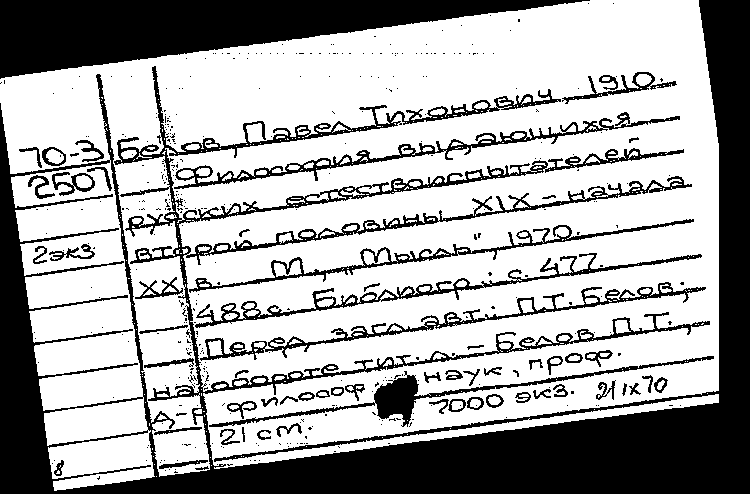 70-3 Белов, Павел Тихонович, 1910.
2507 Философия выдающихся
русских естествоиспытателей
2экз второй половины XIX – начала
XX в. М., „Мысль", 1970.
488 с. Библиогр.: с. 477.
Перед загл. авт.: П.Т. Белов;
на обороте тит. л. – Белов П.Т.,
д-р философ наук, проф.
21 cm. 7000 экз. 21 IX 70
8